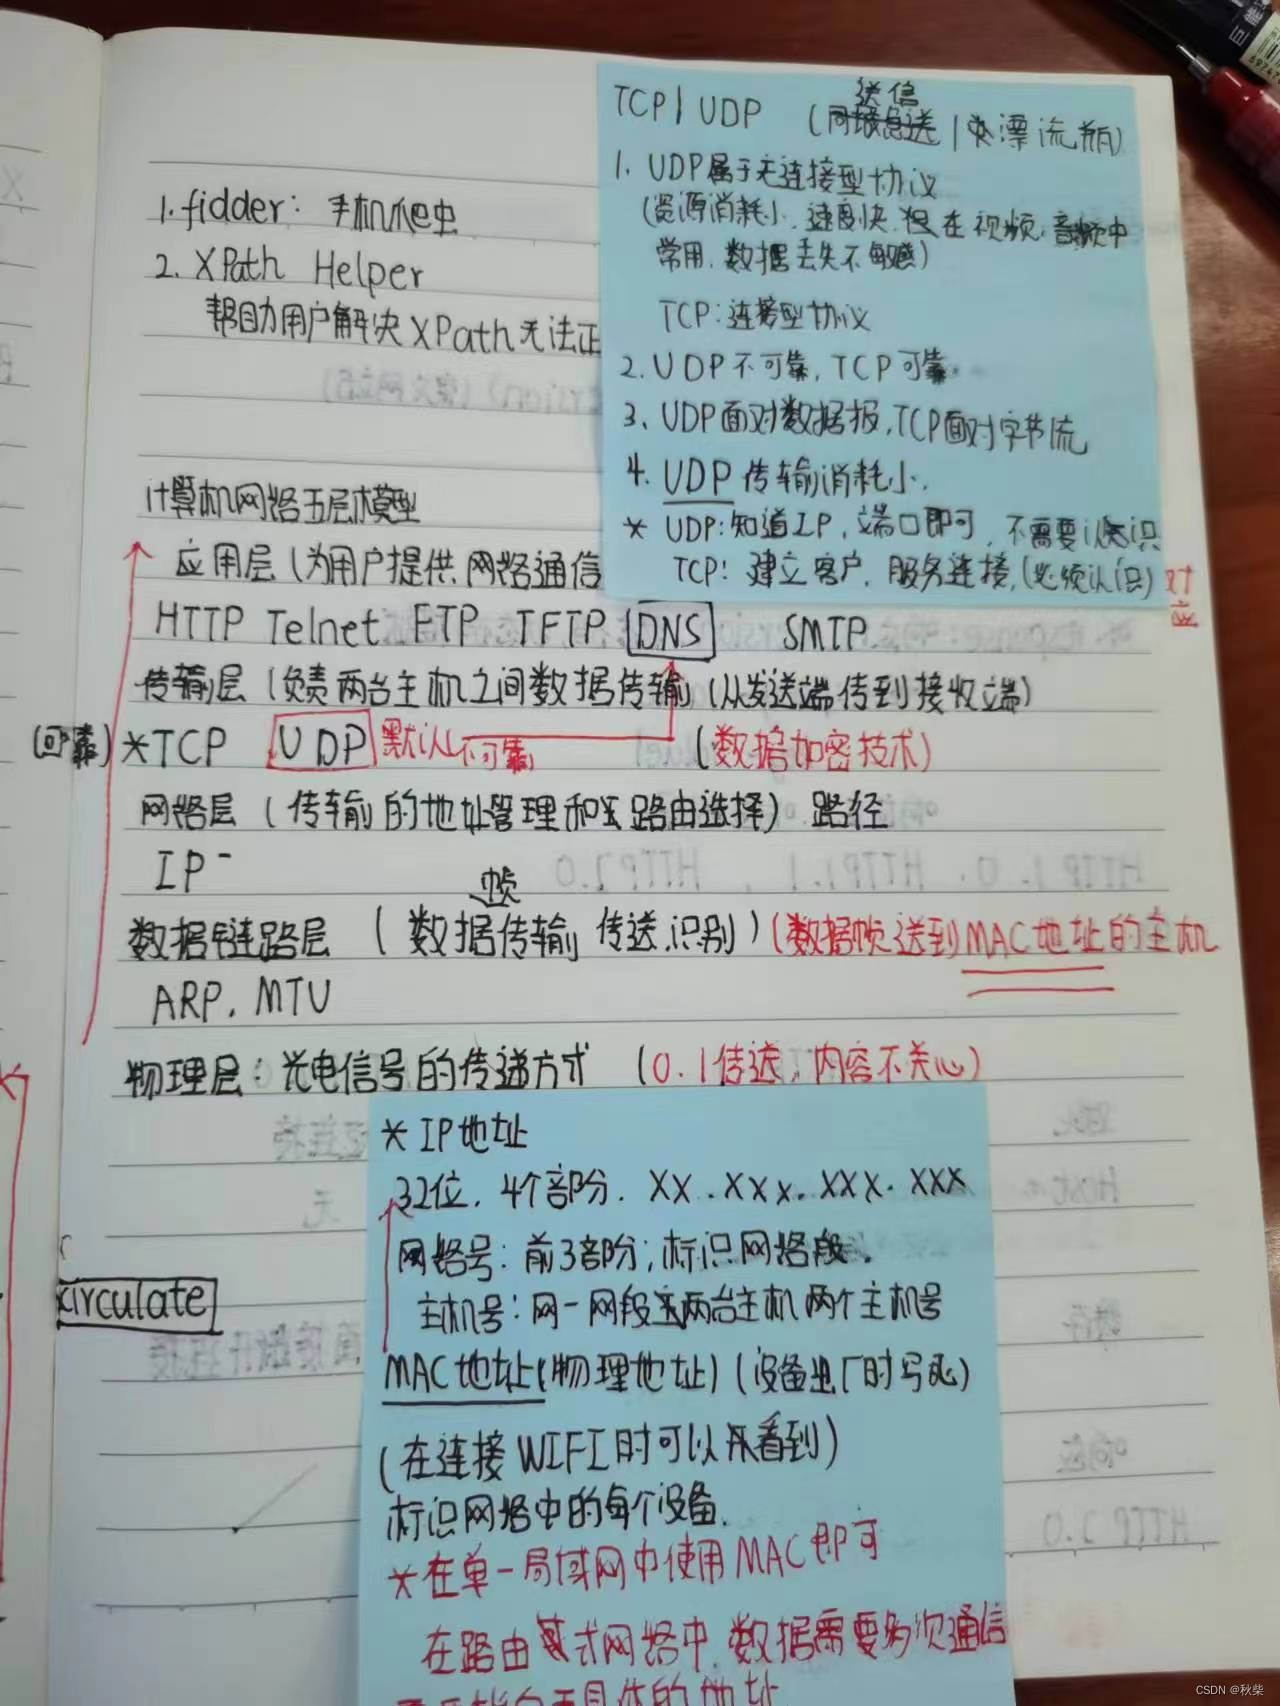 TCP / UDP (送信 / 漂流瓶)
1. UDP属于无连接型协议
(资源消耗小、速度快、但在视频、音频中
常用、数据丢失不敏感)
TCP:连接型协议
2. UDP不可靠,TCP可靠.
3、UDP面对数据报,TCP面对字节流
4. UDP传输消耗小.
* UDP:知道IP,端口即可,不需要认识
TCP:建立客户、服务连接,(必须认识)
1. fidder:手机爬虫
2. XPath Helper
帮助用户解决XPath无法正
计算机网络五层模型
应用层(为用户提供网络通信
对应
HTTP Telnet FTP TFTP DNS SMTP
传输层(负责两台主机之间数据传输(从发送端传到接收端)
(可靠) *TCP UDP 默认不可靠 (数据加密技术)
网络层(传输的地址管理和路由选择)路径
IP
帧
数据链路层(数据传输 传送、识别)(数据帧送到MAC地址的主机
ARP. MTU
物理层:光电信号的传递方式 (0.1传送,内容不关心)
* IP地址
32位.4个部分. XX.XXX.XXX.XXX
网络号:前3部分;标识网络段.
主机号:同一网段两台主机两个主机号
MAC地址(物理地址)(设备出厂时写死)
circulate
(在连接WIFI时可以看到)
标识网络中的每个设备.
*在单一局域网中使用MAC即可
在路由式网络中,数据需要多次通信
具体的地址
CSDN @秋柴